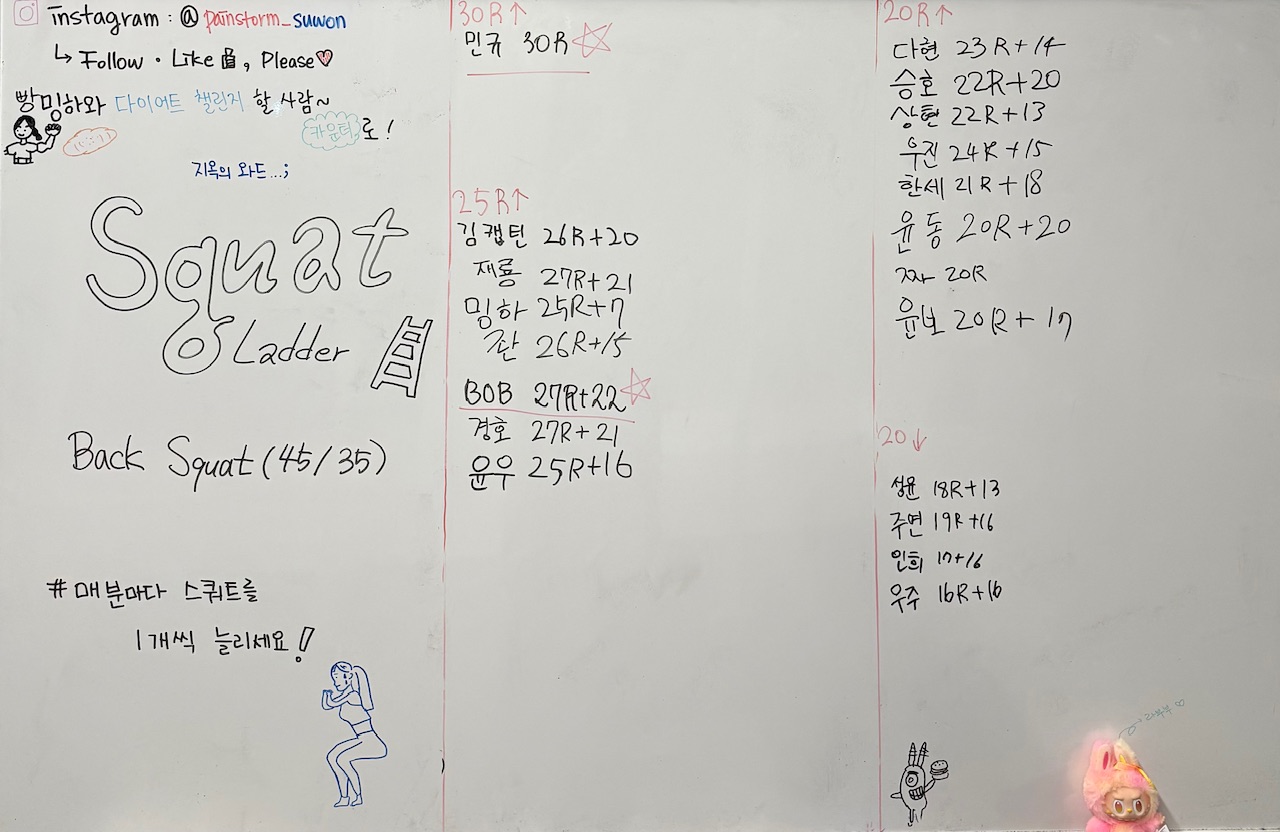 instagram : @painstorm_suwon
↳ Follow · Like, Please
빵밍하와 다이어트 챌린지 할 사람~
카운터로!
지옥의 와드...;
Squat
Ladder
Back Squat (45/35)
#매분마다 스쿼트를
1개씩 늘리세요!
30R↑
민규 30R
25R↑
김캡틴 26R+20
재룡 27R+21
밍하 25R+7
좐 26R+15
BOB 27R+22
경호 27R+21
윤우 25R+16
20R↑
다현 23R+14
승호 22R+20
상현 22R+13
우진 24R+15
한세 21R+18
윤동 20R+20
짜 20R
윤보 20R+17
20↓
성윤 18R+13
주연 19R+16
인희 17+16
우주 16R+16
라부부